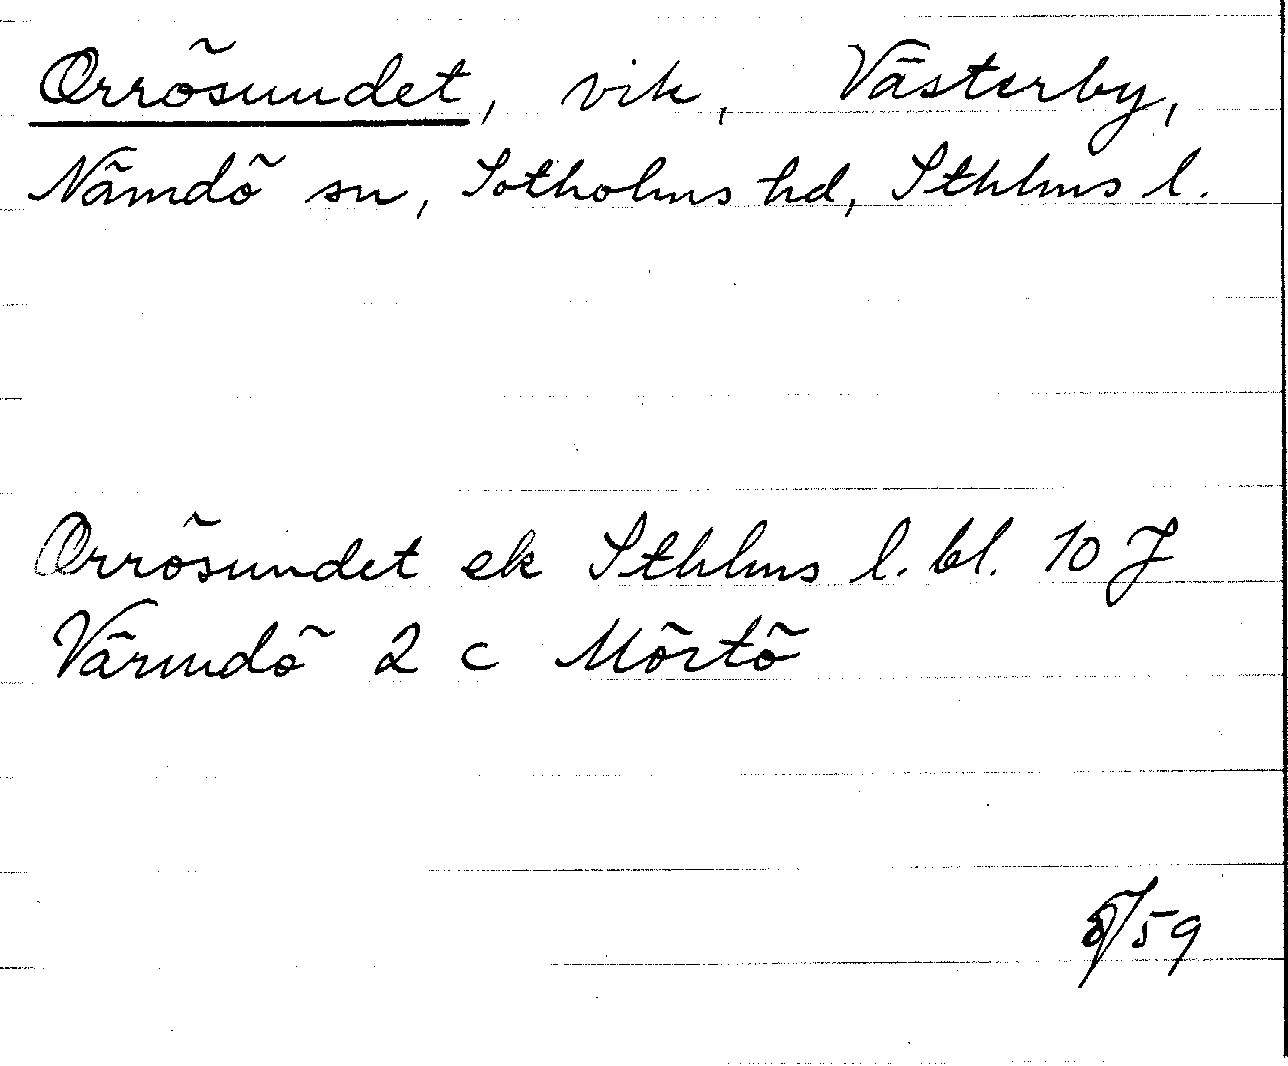 Orrösundet, vik, Västerby,
Nämdö sn, Sotholms hd, Sthlms l.
Orrösundet ek Sthlms l. bl. 10 J
Värmdö 2 c Mörtö
8/59